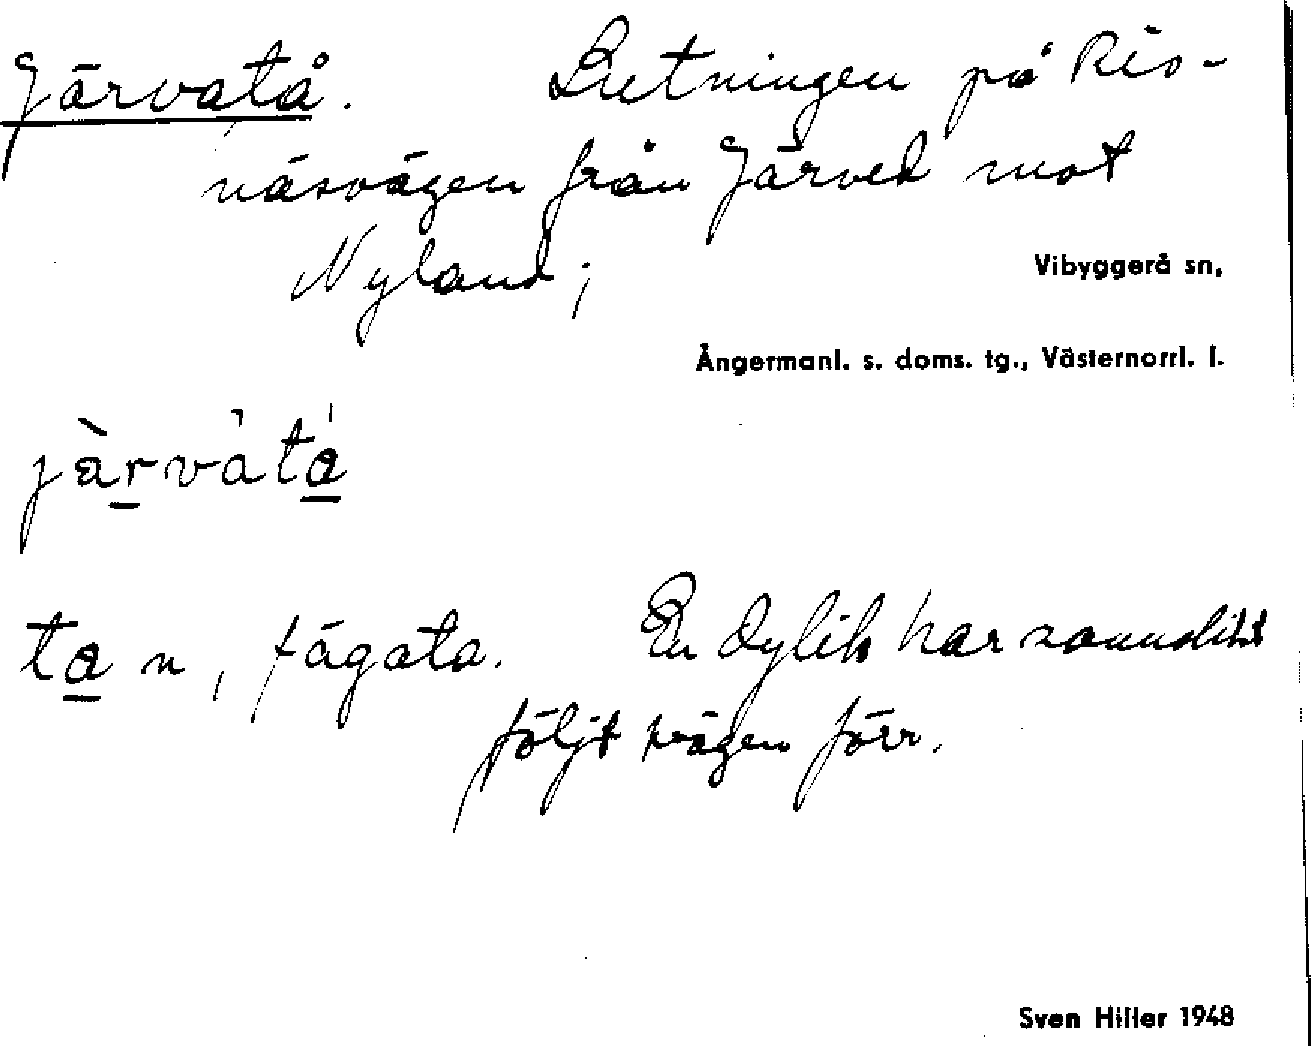 Järvatå. Sluttningen på Ris-
näsvägen från Järved mot
Nyland;
Vibyggerå sn,
Ångermanl. s. doms. tg., Västernorrl. l.
järvàtá
ta n, fägata. En dylik har sannolikt
följt vägen förr.
Sven Hiller 1948